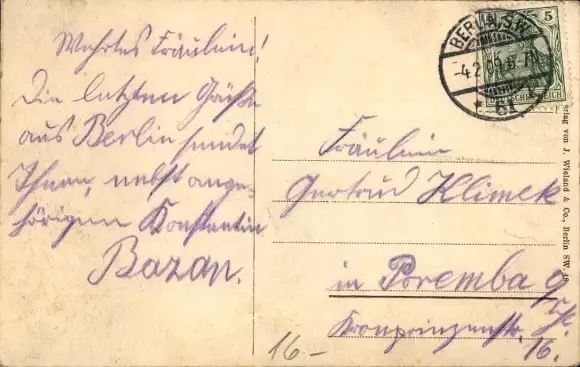 Wehrtes Fräulein!
Die letzten Grüße
aus Berlin sendet
Ihnen, nebst ange-
hörigen Konstantin
Bazan.
BERLIN S.W.
-4.2.09.6-7N.
5
DEUTSCHES REICH
Fräulein
Gertrud Klimek
in Poremba O/S.
Kronprinzenstr.
16.
16-
erlag von J. Wieland & Co., Berlin SW. 48